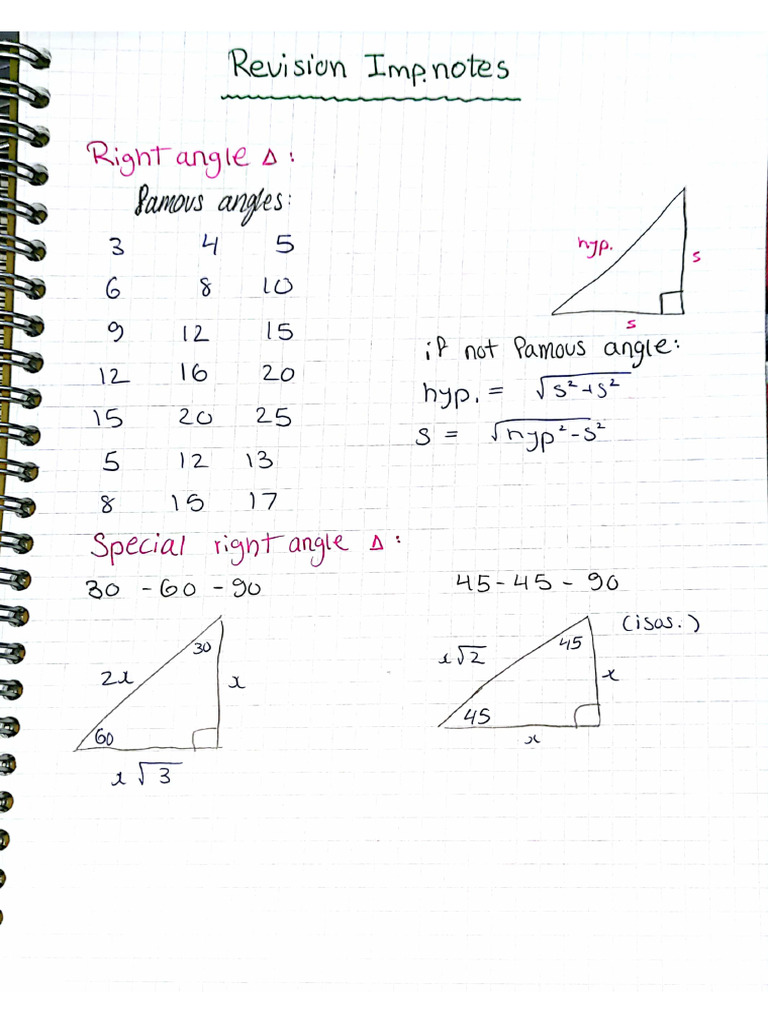 Revision Imp. notes
Right angle Δ :
Famous angles:
3 4 5
6 8 10
9 12 15
12 16 20
15 20 25
5 12 13
8 15 17
hyp.
s
s
if not famous angle:
hyp. = √s²+s²
s = √hyp²-s²
Special right angle Δ :
30 - 60 - 90
30
2x
x
60
x√3
45 - 45 - 90
(isos.)
45
x√2
x
45
x